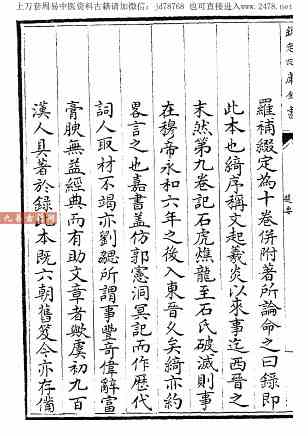 上万套周易中医资料古籍请加微信：jd78768 也可直接进入www.2478.net
欽定四庫全書
提要
羅補綴定為十卷併附著所論命之曰録即
此本也綺序稱文起羲炎以來事迄西晉之
末然第九卷記石虎燋龍至石氏破滅則事
在穆帝永和六年之後入東晉久矣綺亦約
畧言之也嘉書盖仿郭憲洞冥記而作歴代
詞人取材不竭亦劉勰所謂事豐竒偉辭富
膏腴無益經典而有助文章者歟虞初九百
漢人具著於錄此本既六朝舊笈今亦存備